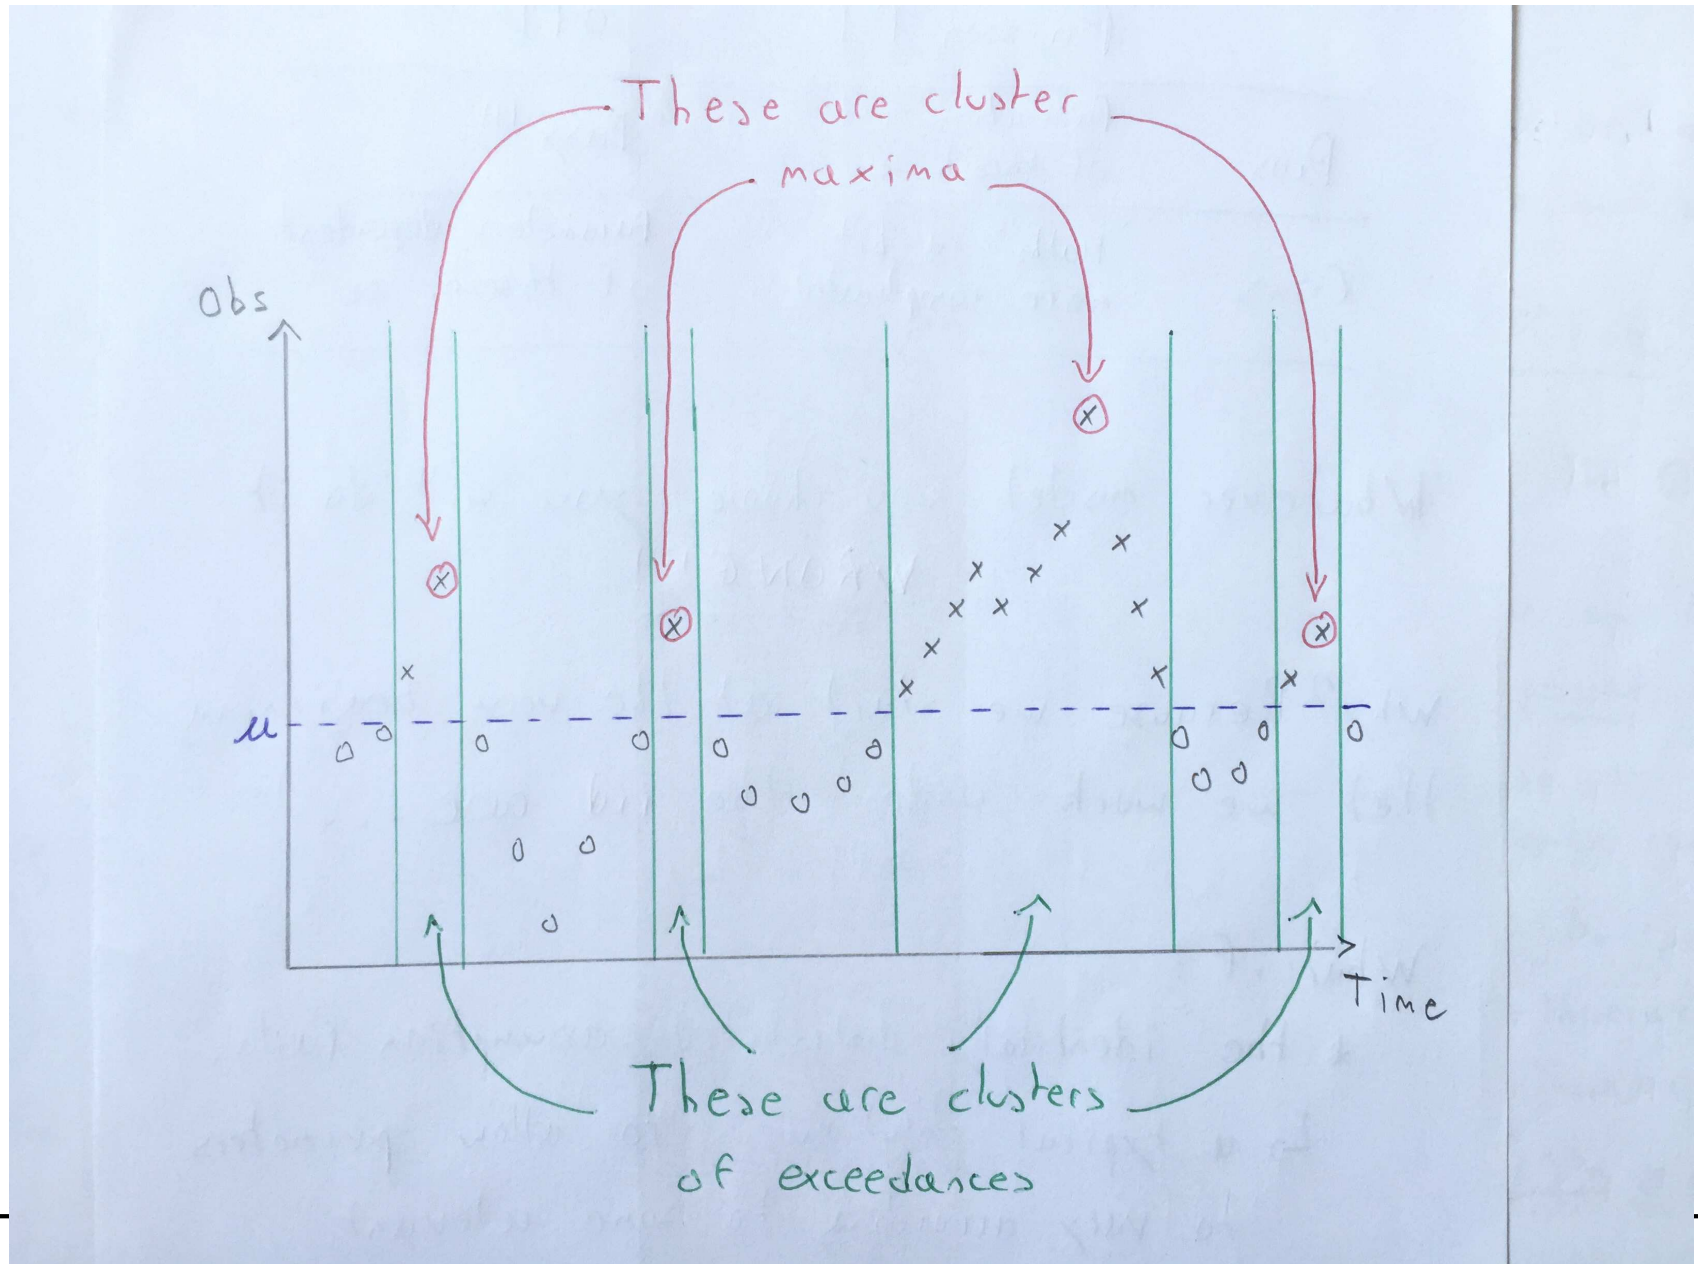 These are cluster
maxima
Obs
u
Time
These are clusters
of exceedances